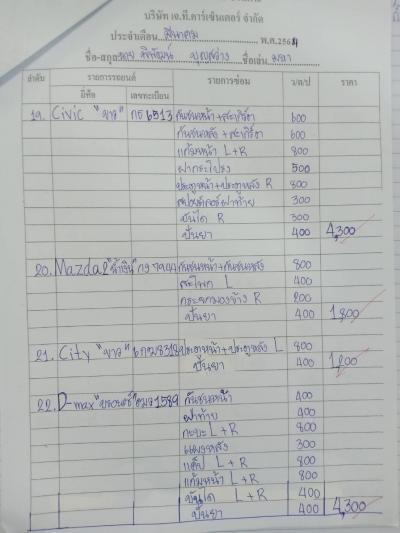 บริษัท เจ.ที.คาร์เซ็นเตอร์ จำกัด
ประจำเดือน มีนาคม พ.ศ.2564
ชื่อ-สกุล นาย บุญสว่าง ชื่อเล่น
ลำดับ รายการรถยนต์ รายการซ่อม ว/ด/ป ราคา
ยี่ห้อ เลขทะเบียน
19. Civic "ขาว" กธ 6513 กันชนหน้า+สเกิร์ต 600
กันชนหลัง+สเกิร์ต 600
แก้มหน้า L+R 800
ฝากระโปรง 500
ประตูหน้า+ประตูหลัง R 800
สปอยเลอร์ฝาท้าย 300
บันได R 300
ปั่นยา 400 4,300
20. Mazda2 "น้ำเงิน" กันชนหน้า+กันชนหลัง 800
สะโพก L 400
กระจกมองข้าง R 200
ปั่นยา 400 1,800
21. City "ขาว" 8312 ประตูหน้า+ประตูหลัง L 800
ปั่นยา 400 1,200
22. D-max "บรอนซ์" 1589 กันชนหน้า 400
ฝาท้าย 400
กะบะ L+R 800
แผงหลัง 300
แค็ป L+R 800
แก้มหน้า L+R 800
บันได L+R 400
ปั่นยา 400 4,300